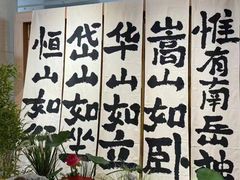 恒山如行
岱山如坐
华山如立
嵩山如卧
惟有南岳